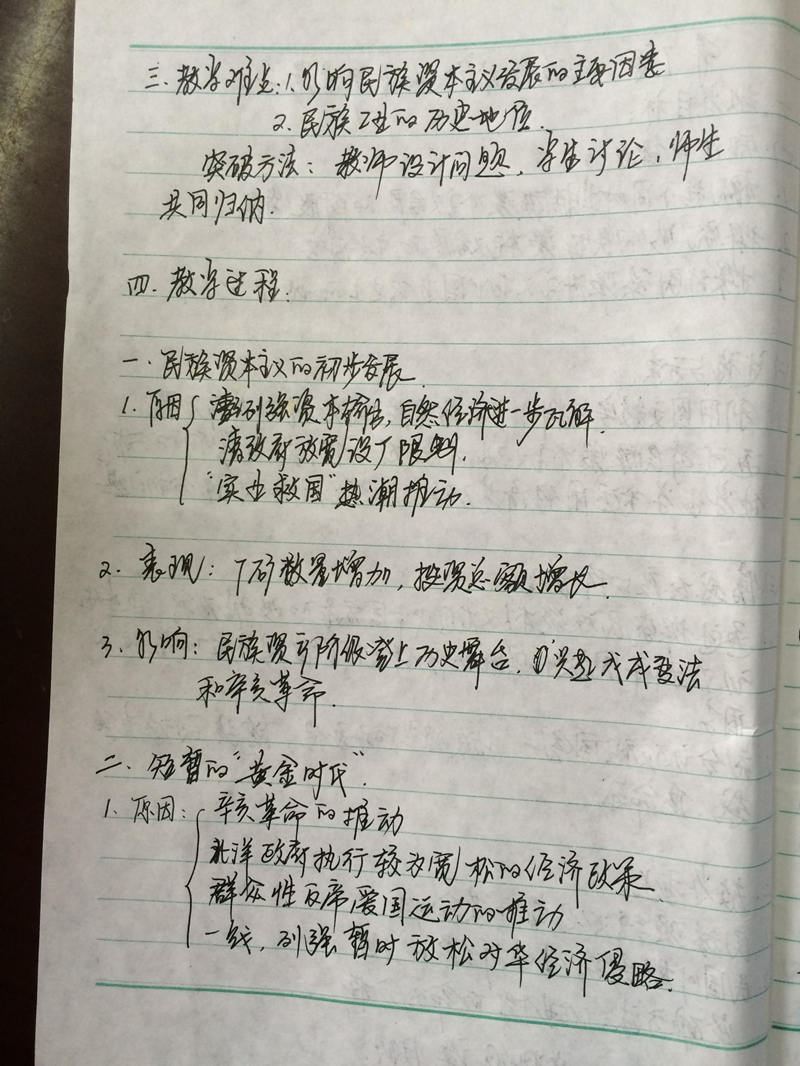 三.教学难点:1.影响民族资本主义发展的主要因素
2.民族工业的历史地位.
突破方法:教师设计问题,学生讨论,师生
共同归纳.
四.教学过程:
一.民族资本主义的初步发展.
1.原因 列强资本输出,自然经济进一步瓦解.
清政府放宽设厂限制.
"实业救国"热潮推动.
2.表现:厂矿数量增加,投资总额增长.
3.影响:民族资产阶级登上历史舞台,兴起戊戌变法
和辛亥革命.
二.短暂的"黄金时代".
1.原因:辛亥革命的推动
北洋政府执行较为宽松的经济政策.
群众性反帝爱国运动的推动
一战,列强暂时放松对华经济侵略.